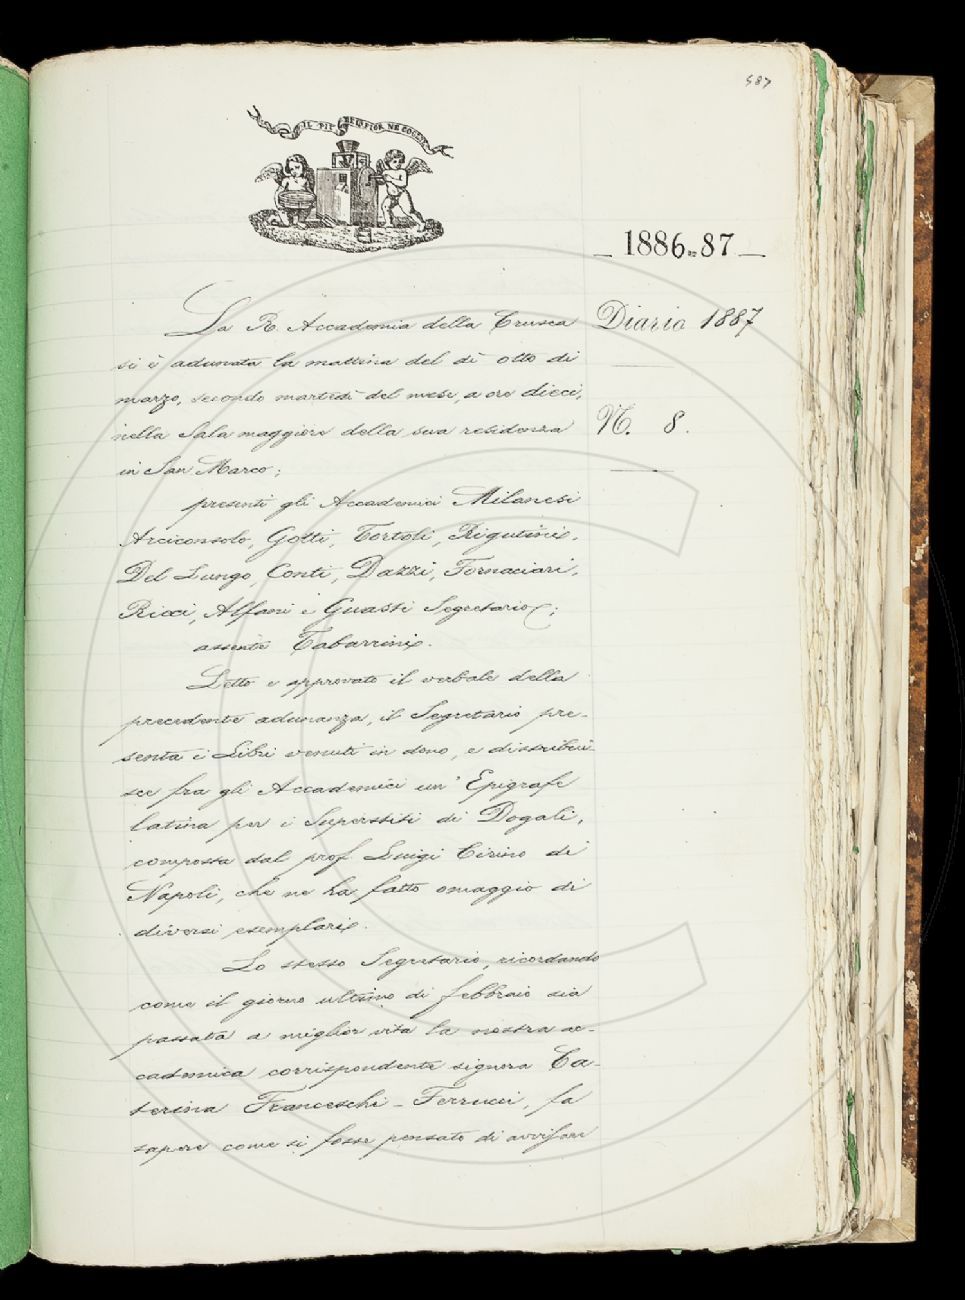 587
IL PIÙ BEL FIOR NE COGLIE
1886-87
Diario 1887
N. 8.
La R. Accademia della Crusca
si è adunata la mattina del dì otto di
marzo, secondo martedì del mese, a ore dieci,
nella Sala maggiore della sua residenza
in San Marco;
presenti gli Accademici Milanesi
Arciconsolo, Gotti, Tortoli, Rigutini,
Del Lungo, Conti, Dazzi, Fornaciari,
Ricci, Alfani e Guasti Segretario;
assente Tabarrini.
Letto e approvato il verbale della
precedente adunanza, il Segretario pre-
senta i Libri venuti in dono, e distribui-
sce fra gli Accademici un' Epigrafe
latina per i Superstiti di Dogali,
composta dal prof. Luigi Cirino di
Napoli, che ne ha fatto omaggio di
diversi esemplari.
Lo stesso Segretario, ricordando
come il giorno ultimo di febbraio sia
passata a miglior vita la nostra ac-
cademica corrispondente signora Ca-
terina Franceschi-Ferrucci, fa
sapere come si fosse pensato di avvisare